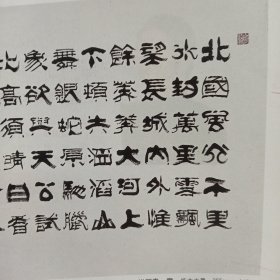 北國風光千里
冰封萬里雪飄
望長城內外惟
餘莽莽大河上
下頓失滔滔山
舞銀蛇原馳臘
象欲與天公試
比高須晴日看